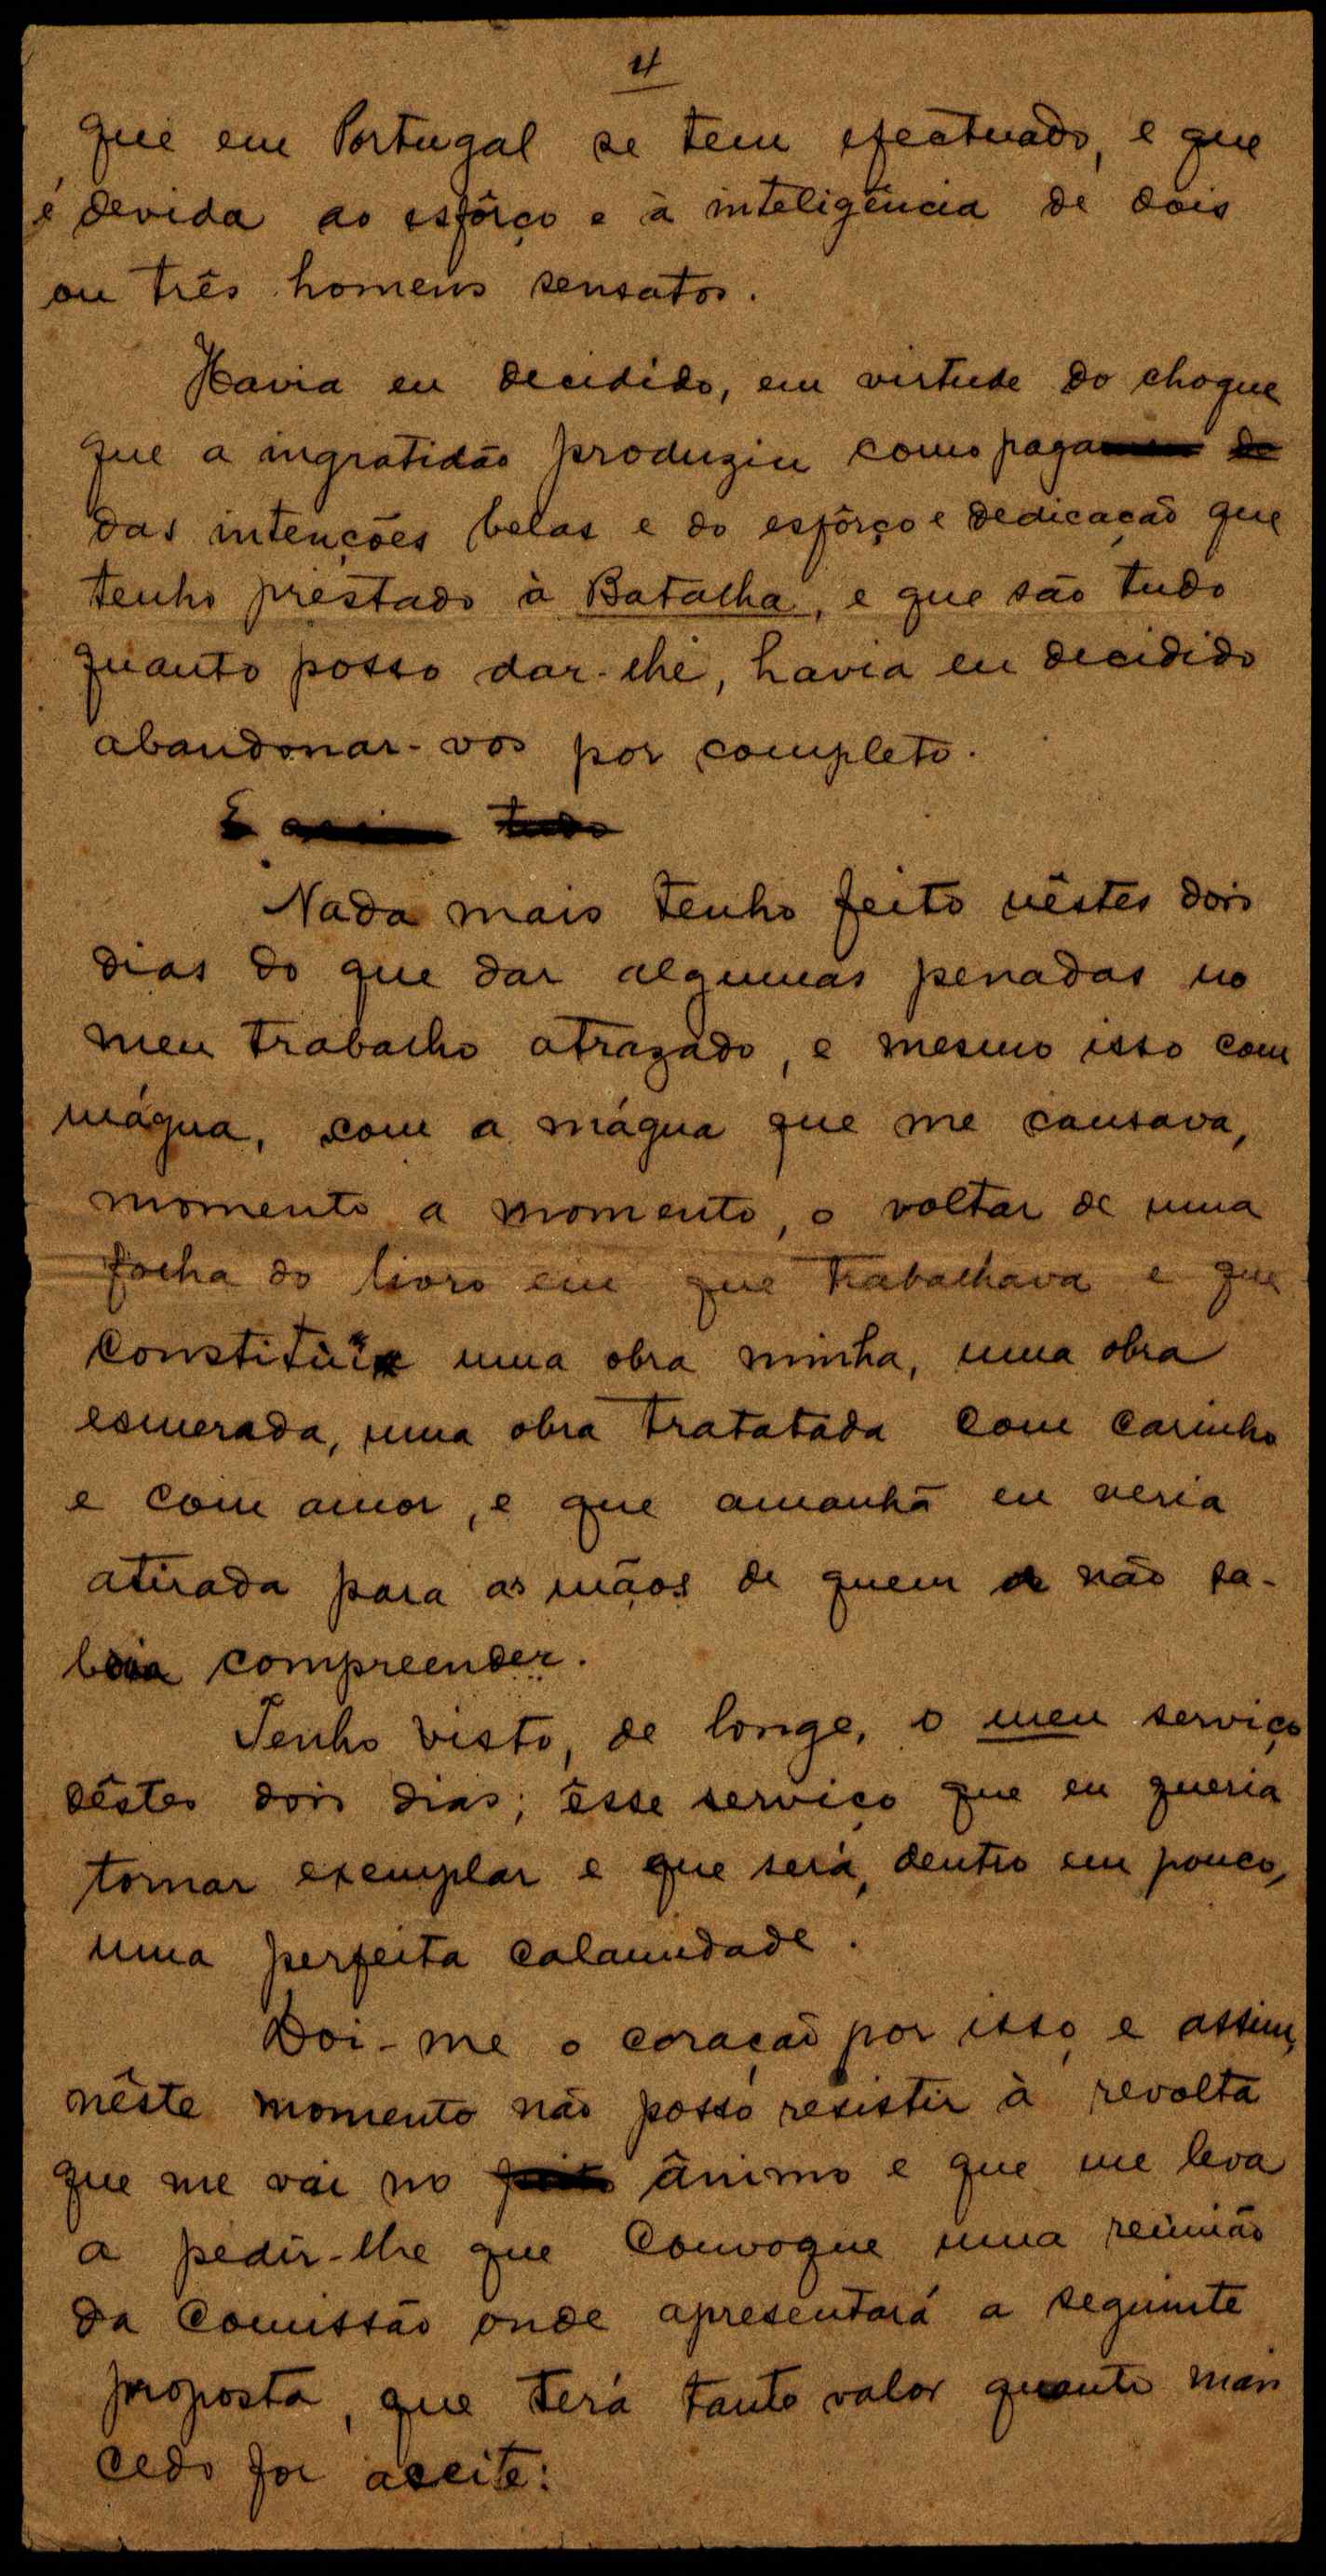 4
que em Portugal se tem efectuado, e que
é devida ao esfôrço e à inteligência de dois
ou três homens sensatos.
Havia eu decidido, em virtude do choque
que a ingratidão produziu como paga
das intenções belas e do esfôrço e dedicação que
tenho prestado à Batalha, e que são tudo
quanto posso dar-lhe, havia eu decidido
abandonar-vos por completo.
E tudo
Nada mais tenho feito nêstes dois
dias do que dar algumas penadas no
meu trabalho atrazado, e mesmo isso com
mágua, com a mágua que me causava,
momento a momento, o voltar de uma
folha do livro em que trabalhava e que
constitùi uma obra minha, uma obra
esmerada, uma obra tratatada com carinho
e com amor, e que amanhã eu veria
atirada para as mãos de quem não sa-
beria compreender.
Tenho visto, de longe, o meu serviço
dêstes dois dias; êsse serviço que eu queria
tornar exemplar e que será, dentro em pouco,
uma perfeita calamidade.
Doi-me o coração por isso, e assim,
nêste momento não posso resistir à revolta
que me vai no ânimo e que me leva
a pedir-lhe que convoque uma reùnião
da Comissão onde apresentará a seguinte
proposta, que terá tanto valor quanto mais
cedo for aceite: